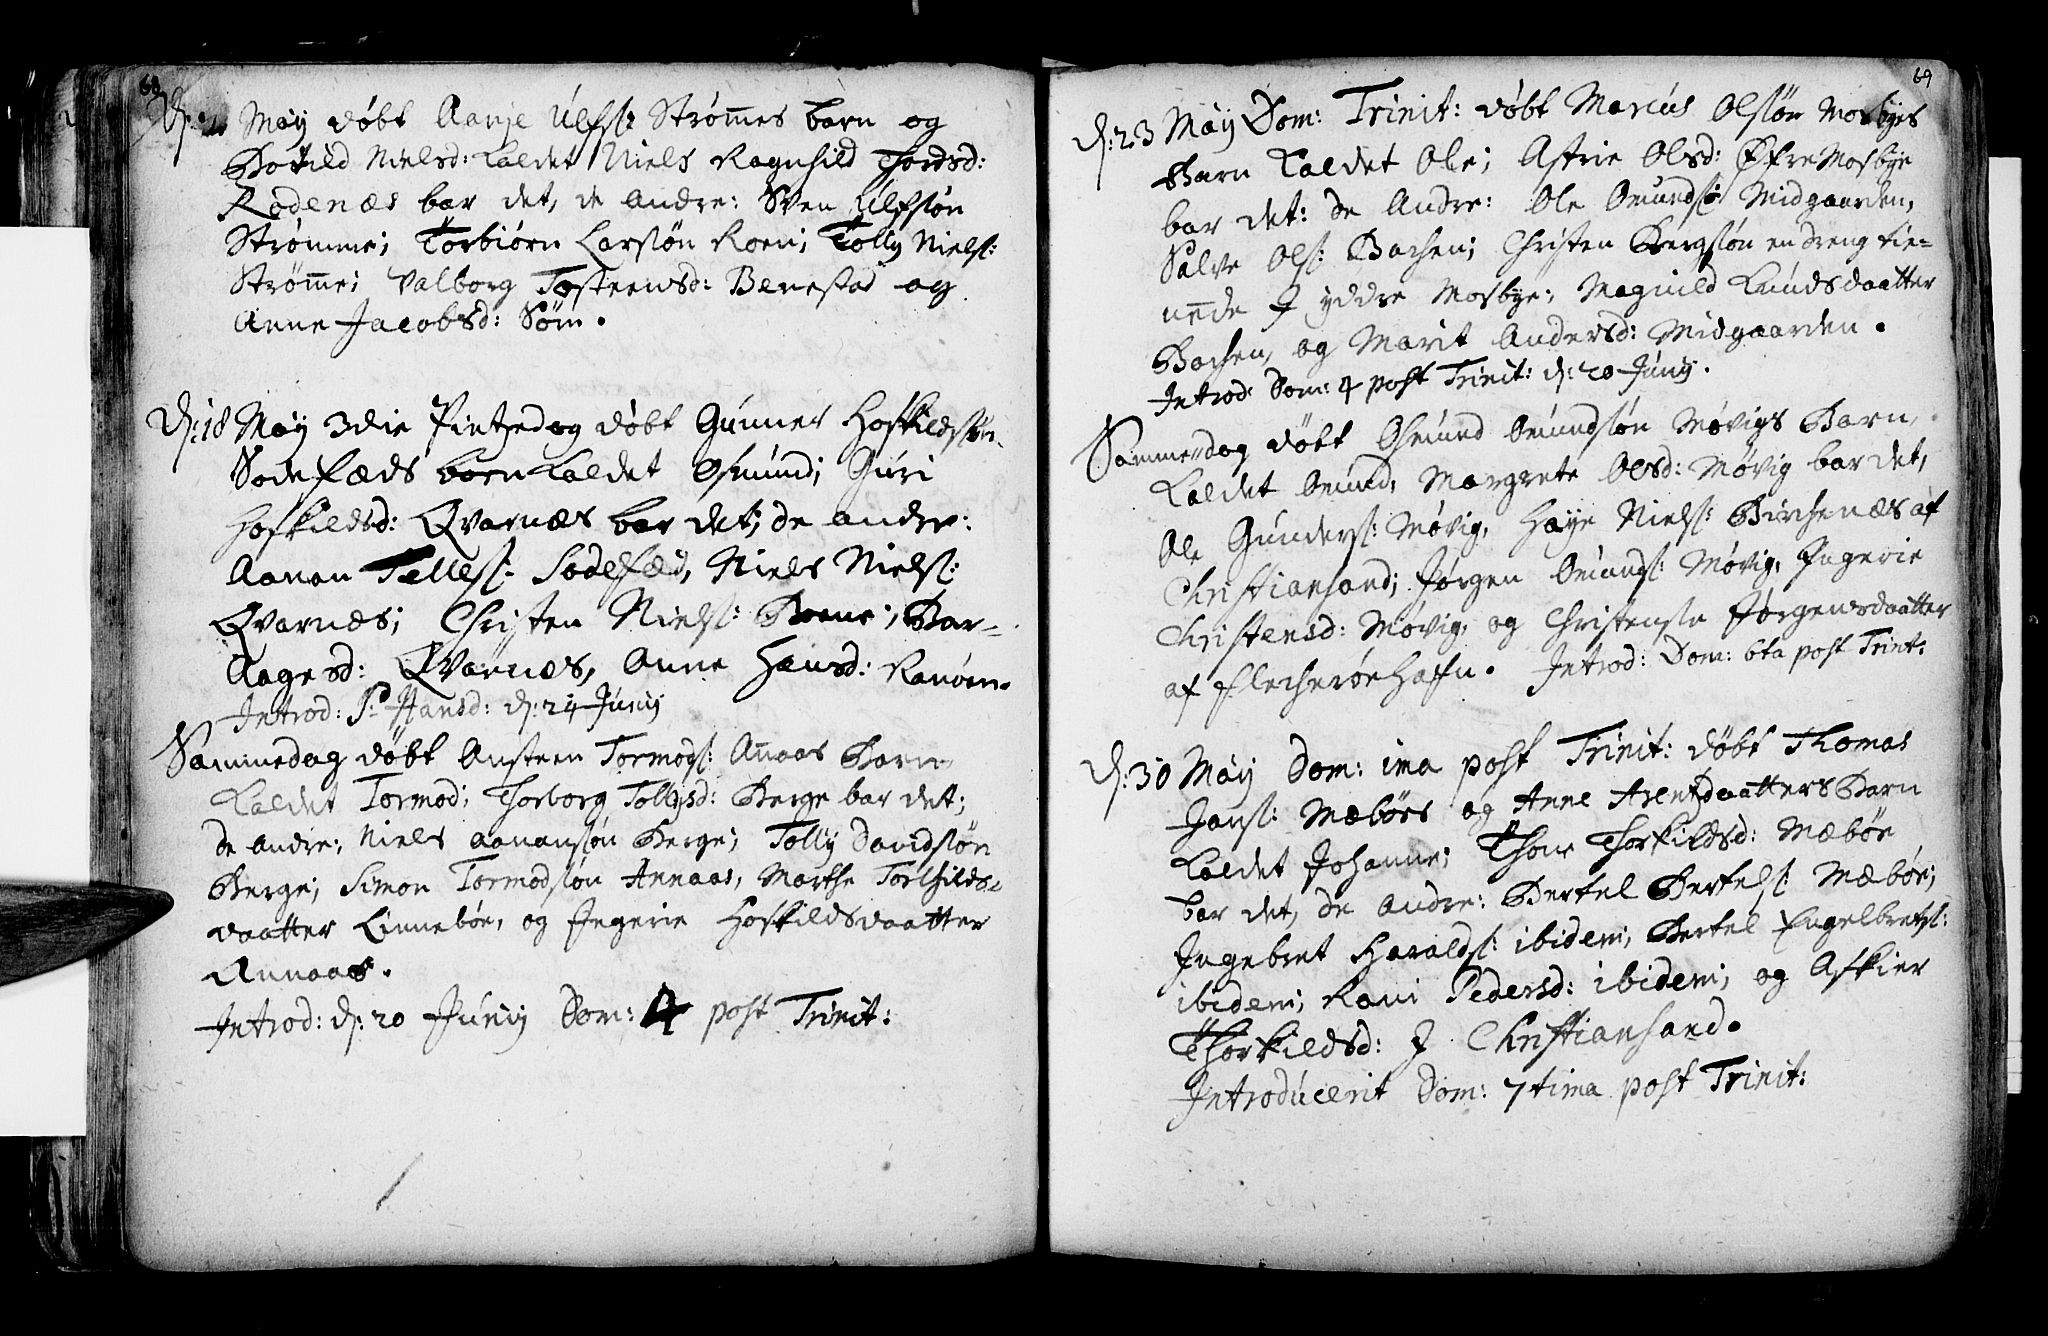 May døbt Aanje Ulfs: Strømmes barn og
Botild Nielsd: kaldet Niels Ragnhild Tordsd:
Rodenæs bar det, de andre: Sven Ulfsøn
Strømme; Torbiørn Larsøn Roen; Tolly Niels:
Strøme; Valborg Tosteensd: Benestad og
Anne Jacobsd: Søm.
D: 18 May 3die Pintzedag døbt Gunner Hoskildsøn
Sodefæds barn kaldet Osmund; Guri
Hoskildsd: Qvarnæs bar det; de andre:
Aanon Tellefs: Sodefæd, Niels Niels:
Qvarnæs; Christen Niels: Boene; Bar-
Aagesd: Qvarnæs, Anne Hansd: Ranøen.
Introd: St Hansd: d: 24 Junij
Sammedag døbt Austeen Tormods: Anaas Barn
kaldet Tormod; Thorborg Tollysd: Berge bar det;
de andre; Niels Aanansøn Berge; Tolly Davidsøn
Berge; Simon Tormodsøn Annaas, Marthe Torkilds-
daatter Linnebøe, og Ingerie Hoskildsdaatter
Annaas.
Introd: d: 20 Junij Dom: 4 post Trinit:
69
D: 23 May Dom: Trinit: døbt Marius Olsøn Mosbyes
Barn kaldet Ole; Astrie Olsd: Øfre Mosbye
bar det: de Andre: Ole Omunds: Midgaarden,
Salve Ols: Bachen; Christen Bergsøn en dreng tie-
nede J yddre Mosbye; Magnild Knudsdaatter
Bachen, og Marit Andersd: Midgaarden.
Introd: Dom: 4 post Trinit: d: 20 Junij.
Sammedag døbt Osmund Omundsøn Møvigs Barn,
kaldet Omund, Margrete Olsd: Møvig bar det,
Ole Gunders: Møvig, Haye Niels: Birchenæs af
Christiansand; Jørgen Omunds: Møvig, Ingerie
Christensd: Møvig, og Christense Jørgensdaatter
af Flecherøe Haffn. Introd: Dom: 6ta post Trinit:
D: 30 May Dom: 1ma post Trinit: døbt Thomas
Jans: Mæbøes og Anne Arentzdaatters Barn
kaldet Johanne; Thore Thorkildsd: Mæbøe
bar det, de Andre: Bertel Bertels: Mæbøe;
Ingebret Haralds: ibidem; Bertel Engelbrets:
ibidem; Rani Pedersd: ibidem; og Askier
Thorkildsd: J Christiansand.
Introducerit Dom: 7tima post Trinit: